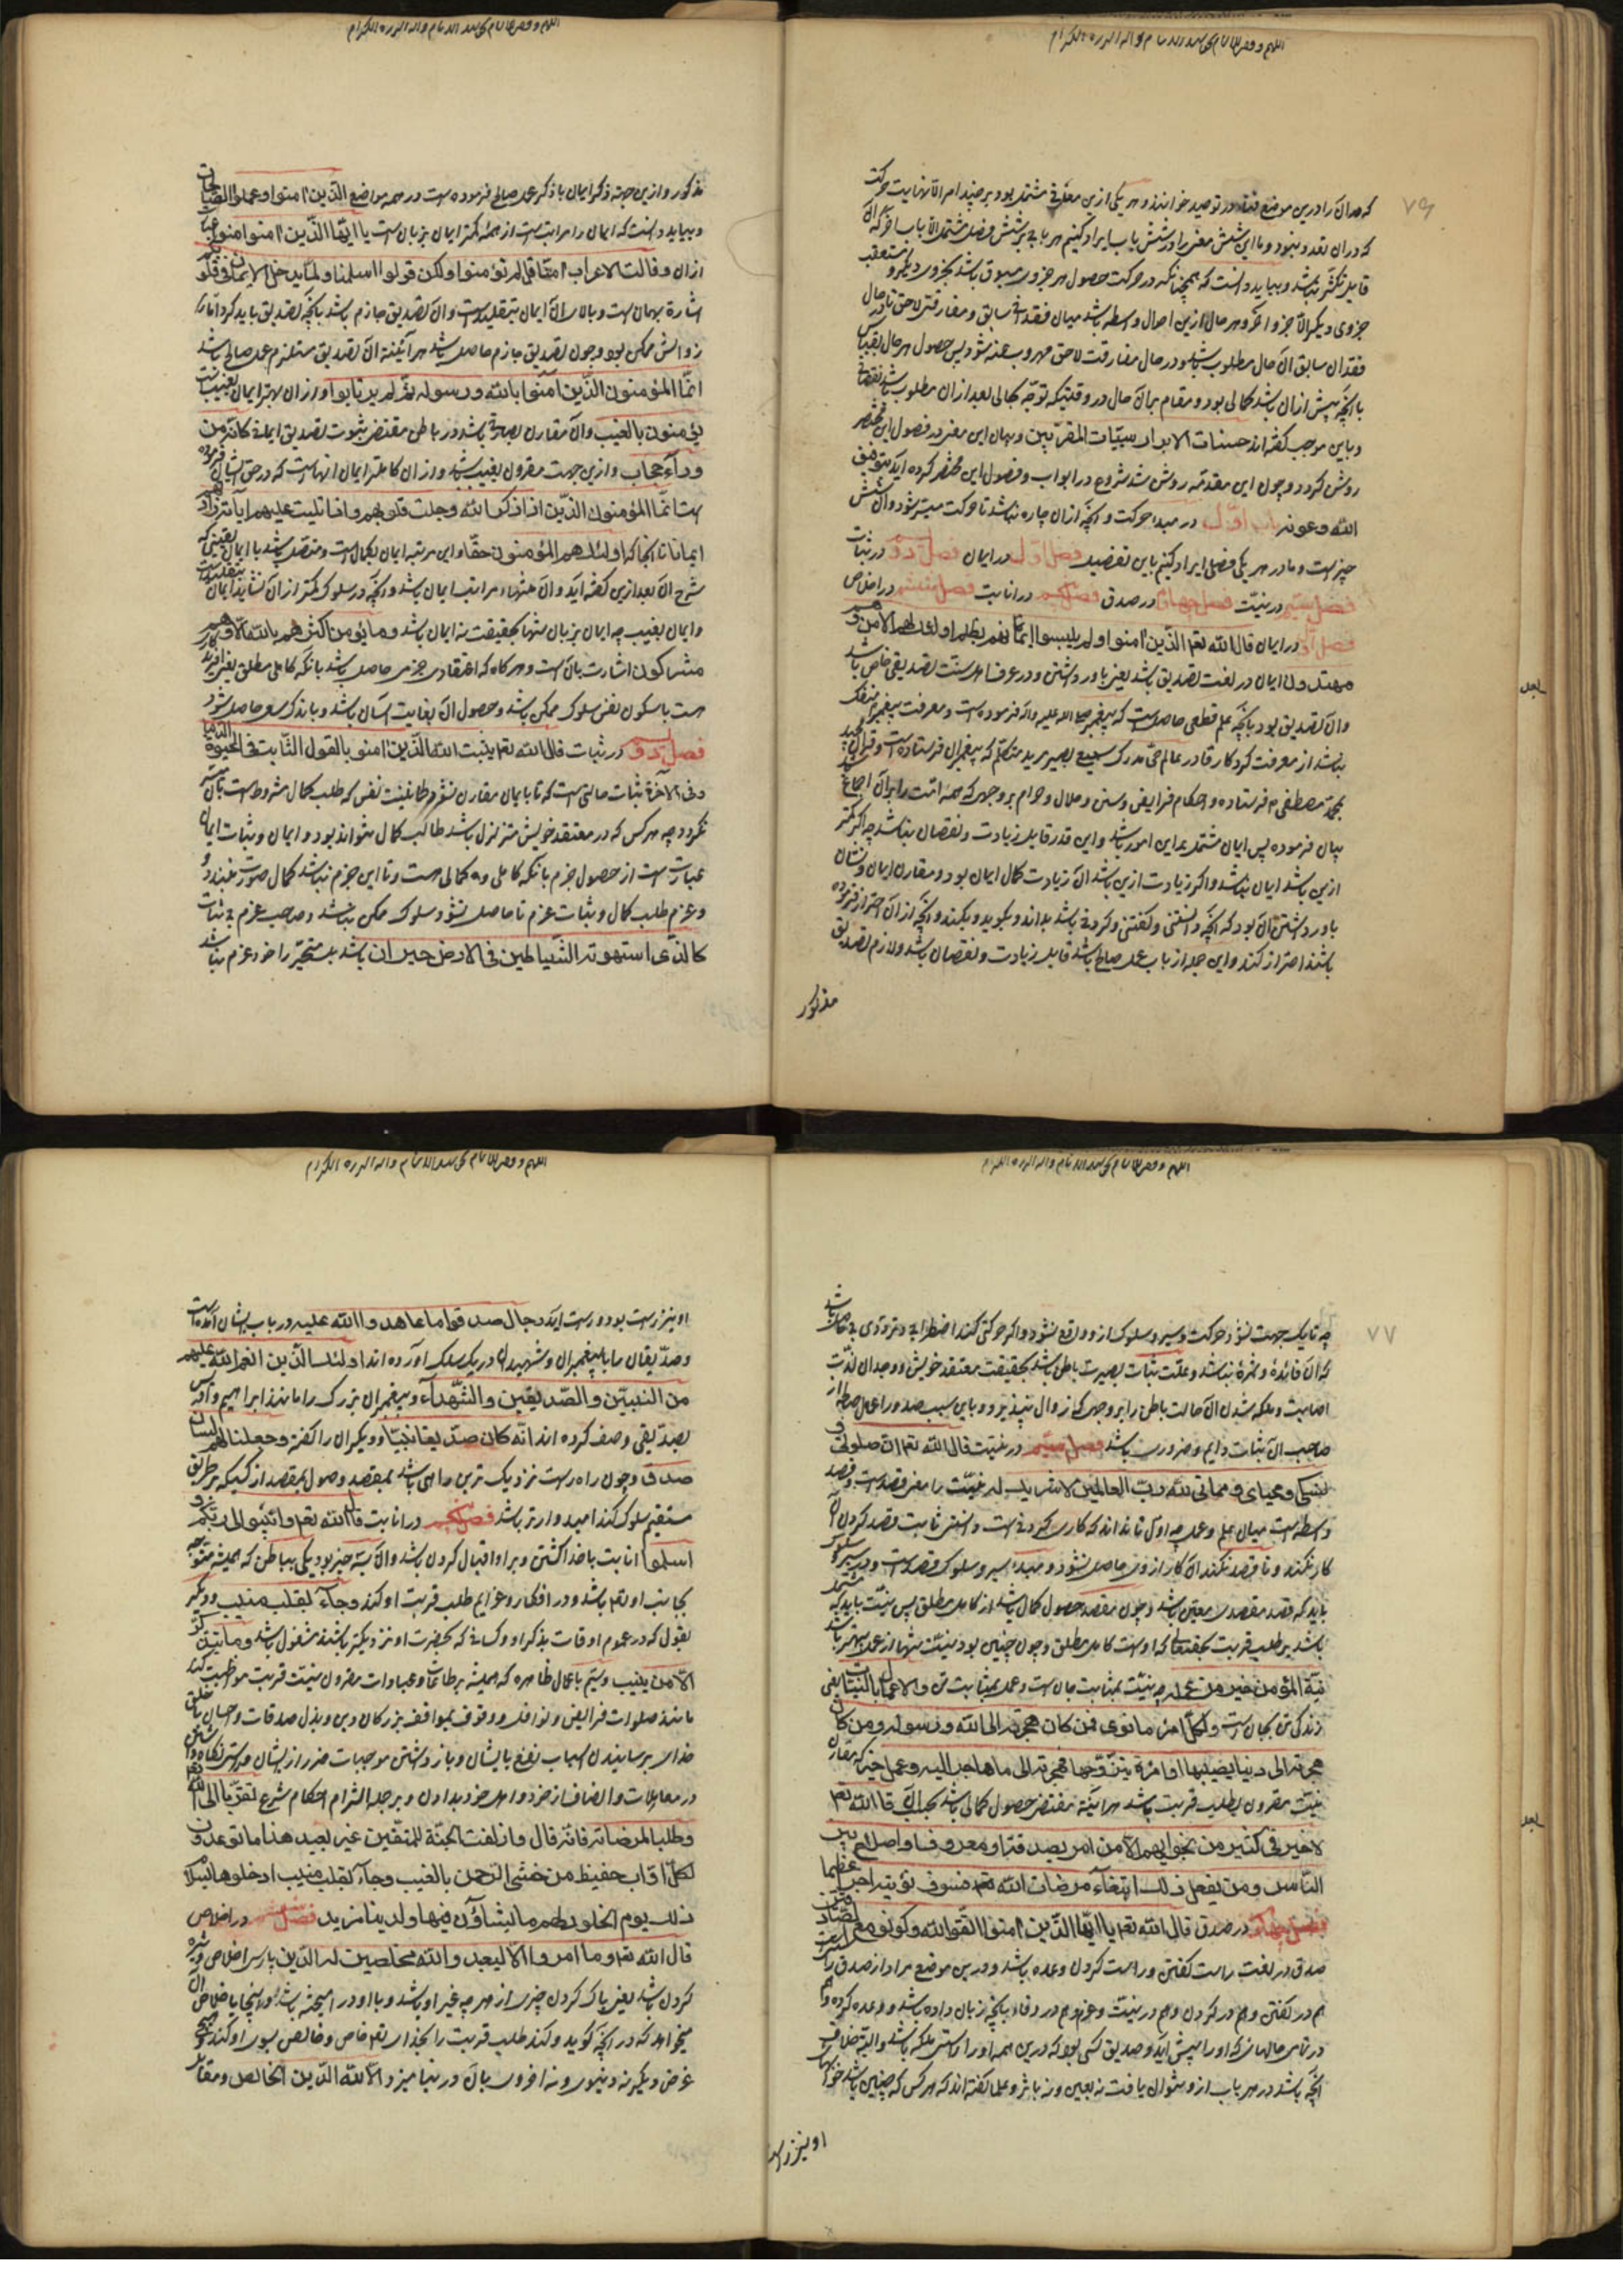 که مدان را درین موضع فنا در توحید خوانند و هر یکی ازین معانی مشتمل بود بر چند امر الا نهایت حرکت
که دران تعدد نبود و ما این شش معنی را در شش باب ایراد کنیم هر بابی بر شش فصل مشتمل الا باب آخر که آن
قابل تکثر نباشد و بباید دانست که همچنانکه در حرکت حصول هر جزوی مسبوق باشد بجزوی دیگر و متعقب
جزوی دیگر الا جزو آخر و هر حال ازین احوال واسطه باشد میان فقدانی سابق و مفارقتی لاحق تا در حال
فقدان سابق آن حال مطلوب باشد و در حال مفارقت لاحق مهروب عنه شود پس حصول هر حال بقیاس
با آنچه پیش ازان باشد کمالی بود و مقام بران حال در وقتیکه توجه بحالی بعد ازان مطلوب باشد نقصان
و باین موجب گفته اند حسنات الابرار سیئات المقربین و بیان این معنی در فصول این مختصر
روشن گردد و چون این مقدمه روشن شد شروع در ابواب و فصول این مختصر کرده آید بتوفیق
الله و عونه باب اول در مبدا حرکت و آنچه ازان چاره نباشد تا حرکت میسر شود و آن شش
چیز است و ما در هر یکی فصلی ایراد کنیم باین تفصیل فصل اول در ایمان فصل دوم در ثبات
فصل سیم در نیت فصل چهارم در صدق فصل پنجم در انابت فصل ششم در اخلاص
فصل اول در ایمان قال الله تعم الذین امنوا و لم یلبسوا ایمانهم بظلم اولئک لهم الامن و هم
مهتدون ایمان در لغت تصدیق باشد یعنی باور داشتن و در عرف اهل سنت تصدیقی خاص باشد
و آن تصدیق بود بآنچه علم قطعی حاصلست که پیغمبر صلی الله علیه و آله فرموده است و معرفت پیغمبر منفک
نباشد از معرفت کردکار قادر عالم حی مدرک سمیع بصیر مرید متکلم که پیغمبران فرستاده است و قرآن مجید
بمحمد مصطفی م فرستاده و احکام فرایض و سنن و حلال و حرام بر وجهی که همه امت را بران اجماع باشد
بیان فرموده پس ایمان مشتمل بر این امور باشد و این قدر قابل زیادت و نقصان نباشد چه اگر کمتر
ازین باشد ایمان نباشد و اگر زیادت ازین باشد آن زیادت کمال ایمان بود و مقارن ایمان و نشان
باور داشتن آن بود که آنچه دانستنی و گفتنی و کردنی باشد بداند و بگوید و بکند و آنچه ازان احتراز فرموده
باشند احتراز کند و این جمله از باب عمل صالح باشد و قابل زیادت و نقصان باشد و لازم تصدیق
مذکور
مذکور و ازین جهة ذکر ایمان با ذکر عمل صالح فرموده است در همه مواضع الذین امنوا و عملوا الصالحات
و بباید دانست که ایمان را مراتب است از همه کمتر ایمان بزبان ست یا ایها الذین امنوا امنوا عبارت
ازان و قالت الاعراب امنا قل لم تؤمنوا و لکن قولوا اسلمنا و لما یدخل الایمان فی قلوبکم
اشاره بهمان ست و بالای آن ایمان بتقلیدست و آن تصدیق جازم باشد بآنچه تصدیق باید کرد اما
زوالش ممکن بود و چون تصدیق جازم حاصل باشد هر آینه آن تصدیق مستلزم عمل صالح باشد
انما المؤمنون الذین آمنوا بالله و رسوله ثم لم یرتابوا و ازان بهتر ایمان بغیب ست
یؤمنون بالغیب و آن مقارن بصیرتی باشد در باطن مقتضی ثبوت تصدیق ایمان کانه من
وراء حجاب و ازین جهت مقرون بغیب باشد و ازان کاملتر ایمان انهاست که در حق ایشان فرموده
است انما المؤمنون الذین اذا ذکر الله وجلت قلوبهم و اذا تلیت علیهم ایاته زادتهم
ایمانا تا انجا که اولئک هم المؤمنون حقا و این مرتبه ایمان بکمال است و متصل باشد با ایمان یقینی که
شرح آن بعد ازین گفته آید و آن منتهاء مراتب ایمان باشد و آنچه در سلوک کمتر ازان نشاید ایمان بتقلیدست
و ایمان بغیب چه ایمان بزبان تنها بحقیقت نه ایمان باشد و ما یؤمن اکثرهم بالله الا و هم
مشرکون اشارت بانست و هر گاه که اعتقادی جزمی حاصل باشد بآنکه کاملی مطلق یعنی آفریدکار
هست با سکون نفس سلوک ممکن باشد و حصول آن بغایت آسان باشد و باندک سعی حاصل شود
فصل دوم در ثبات قال الله تعم یثبت الله الذین امنوا بالقول الثابت فی الحیوة الدنیا
و فی الآخرة ثبات حالتی است که تا با ایمان مقارن نشود طمانینت نفس که طلب کمال مشروط است بآن میسر
نکردد چه هر کس که در معتقد خویش متزلزل باشد طالب کمال نتواند بود و ایمان و ثبات ایمان
عبارتست از حصول جزم بآنکه کاملی و کمالی هست و تا این جزم نباشد کمال صورت نبندد
و عزم طلب کمال و ثبات عزم تا حاصل نشود سلوک ممکن نباشد و صاحب عزم بی ثبات
کالذی استهوته الشیاطین فی الارض حیران باشد بل متحیر را خود عزم نباشد
چه تا یک جهت نشود حرکت و سیر و سلوک ازو واقع نشود و اگر حرکتی کند اضطرابی و ترددی بی حاصل باشد
که آن فائده و ثمره نباشد و علت ثبات بصیرت باطن باشد بحقیقت معتقد خویش و وجدان لذت
اصابت و ملکه شدن آن حالت باطن را بر وجهی که زوال نپذیرد و باین سبب صدور اعمال صالحه از
صاحب آن ثبات دایم و ضروری باشد فصل سیم در نیت قال الله تعم ان صلوتی و
نسکی و محیای و مماتی لله رب العالمین لا شریک له نیت را معنی قصدست و قصد
واسطه است میان علم و عمل چه اول تا نداند که کاری کردنی است و دانستن ثابت قصد کردن آن
کار نکند و تا قصد نکند آن کار ازو حاصل نشود و مبدا سیر و سلوک قصدست و در سیر و سلوک
باید که قصد مقصدی معین باشد و چون مقصد حصول کمال باشد از کامل مطلق پس نیت باید که مشتمل
باشد بر طلب قربت بحقتعالی که اوست کامل مطلق و چون چنین بود نیت تنها از عمل تنها بهتر باشد
نیة المؤمن خیر من عمله چه نیت بمثابت جان است و عمل بمثابت تن و الاعمال بالنیات یعنی
زندگی تن بجان ست و لکل امرئ ما نوی فمن کان هجرته الی الله و رسوله و من کان
هجرته الی دنیا یصیبها او امراة یتزوجها فهجرته الی ما هاجر الیه و عمل خیر که مقارن
نیت مقرون بطلب قربت باشد هر آینه مقتضی حصول کمالی باشد بحسب آن قال الله تعم
لا خیر فی کثیر من نجویهم الا من امر بصدقة او معروف او اصلاح بین
الناس و من یفعل ذلک ابتغاء مرضات الله فسوف نؤتیه اجرا عظیما
فصل چهارم در صدق قال الله تعم یا ایها الذین امنوا اتقوا الله و کونوا مع الصادقین
صدق در لغت راست گفتن و راست کردن وعده باشد و درین موضع مراد از صدق راستی است
هم در گفتن و هم در کردن و هم در نیت و عزم و هم در وفا بآنچه زبان داده باشد و وعده کرده و هم
در تمامی حالهائی که او را پیش آید و صدیق کسی بود که درین همه او را راستی ملکه باشد و البته خلاف
آنچه باشد در هر باب ازو نتوان یافت نه بعین و نه باثر و علما گفته اند که هر کس که چنین باشد خوابهای
او نیز راست
او نیز راست بود و درست آید رجال صدقوا ما عاهدوا الله علیه در باب ایشان آمده است
و صدیقان را با پیغمبران و شهیدان در یک سلک آورده اند اولئک الذین انعم الله علیهم
من النبیین و الصدیقین و الشهدآء و پیغمبران بزرک را مانند ابراهیم و ادریس
بصدیقی وصف کرده اند انه کان صدیقا نبیا و دیگران را گفته و جعلنا لهم لسان
صدق و چون راه راست نزدیک ترین راهی باشد بمقصد وصول بمقصد از کسیکه بر طریق
مستقیم سلوک کند امیدوارتر باشد فصل پنجم در انابت قال الله تعم و انیبوا الی ربکم و
اسلموا انابت با خدا گشتن و بر او اقبال کردن باشد و آن بسه چیز بود یکی بباطن که همیشه متوجه
بجانب او تعم باشد و در افکار و عزایم طلب قربت او کند و جآء بقلب منیب و دیگر
بقول که در عموم اوقات بذکر او و کسانی که بحضرت او نزدیکتر باشند مشغول باشد و ما یتذکر
الا من ینیب و سیم باعمال ظاهره که همیشه بر طاعات و عبادات مقرون بنیت قربت مواظبت کند
مانند صلوات فرائض و نوافل و وقوف بمواقف بزرکان دین و بذل صدقات و احسان با خلق
خدای و رسانیدن اسباب نفع بایشان و باز داشتن موجبات ضرر از ایشان و راستی نگاه داشتن
در معاملات و انصاف از خود و اهل خود بدادن و بر جمله التزام احکام شرع تقربا الی الله تعم
و طلبا لمرضاته فانه قال و ازلفت الجنة للمتقین غیر بعید هذا ما توعدون
لکل اواب حفیظ من خشی الرحمن بالغیب و جآء بقلب منیب ادخلوها بسلام
ذلک یوم الخلود لهم ما یشاؤن فیها و لدینا مزید فصل ششم در اخلاص
قال الله تعم و ما امروا الا لیعبدوا الله مخلصین له الدین پارسی اخلاص ویژه
کردن باشد یعنی پاک کردن چیزی از هر چه غیر او باشد و با او در آمیخته باشد و اینجا باخلاص آن
میخواهد که در آنچه گوید و کند طلب قربت را بخدای تعم خاص و خالص بسوی او کند که هیچ
غرض دیگر نه دنیوی و نه اخروی بآن در نیامیزد الا لله الدین الخالص و مقابل